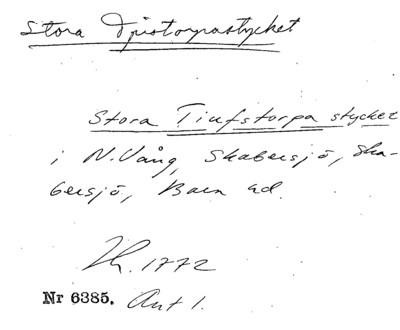 Stora Djustorpastycket
Stora Tiufstorpa stycket
i N. Vång, Skabersjö, Ska-
bersjö, Bara hd.
Ht. 1772
Nr 6385. Art 1.